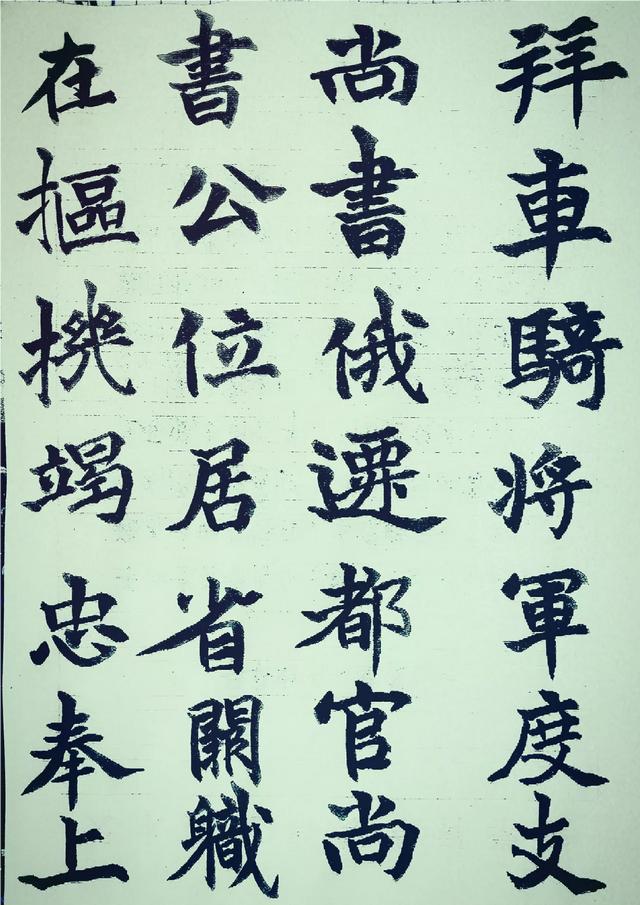 拜車騎將軍度支
尚書俄遷都官尚
書公位居省闕職
在摳機竭忠奉上